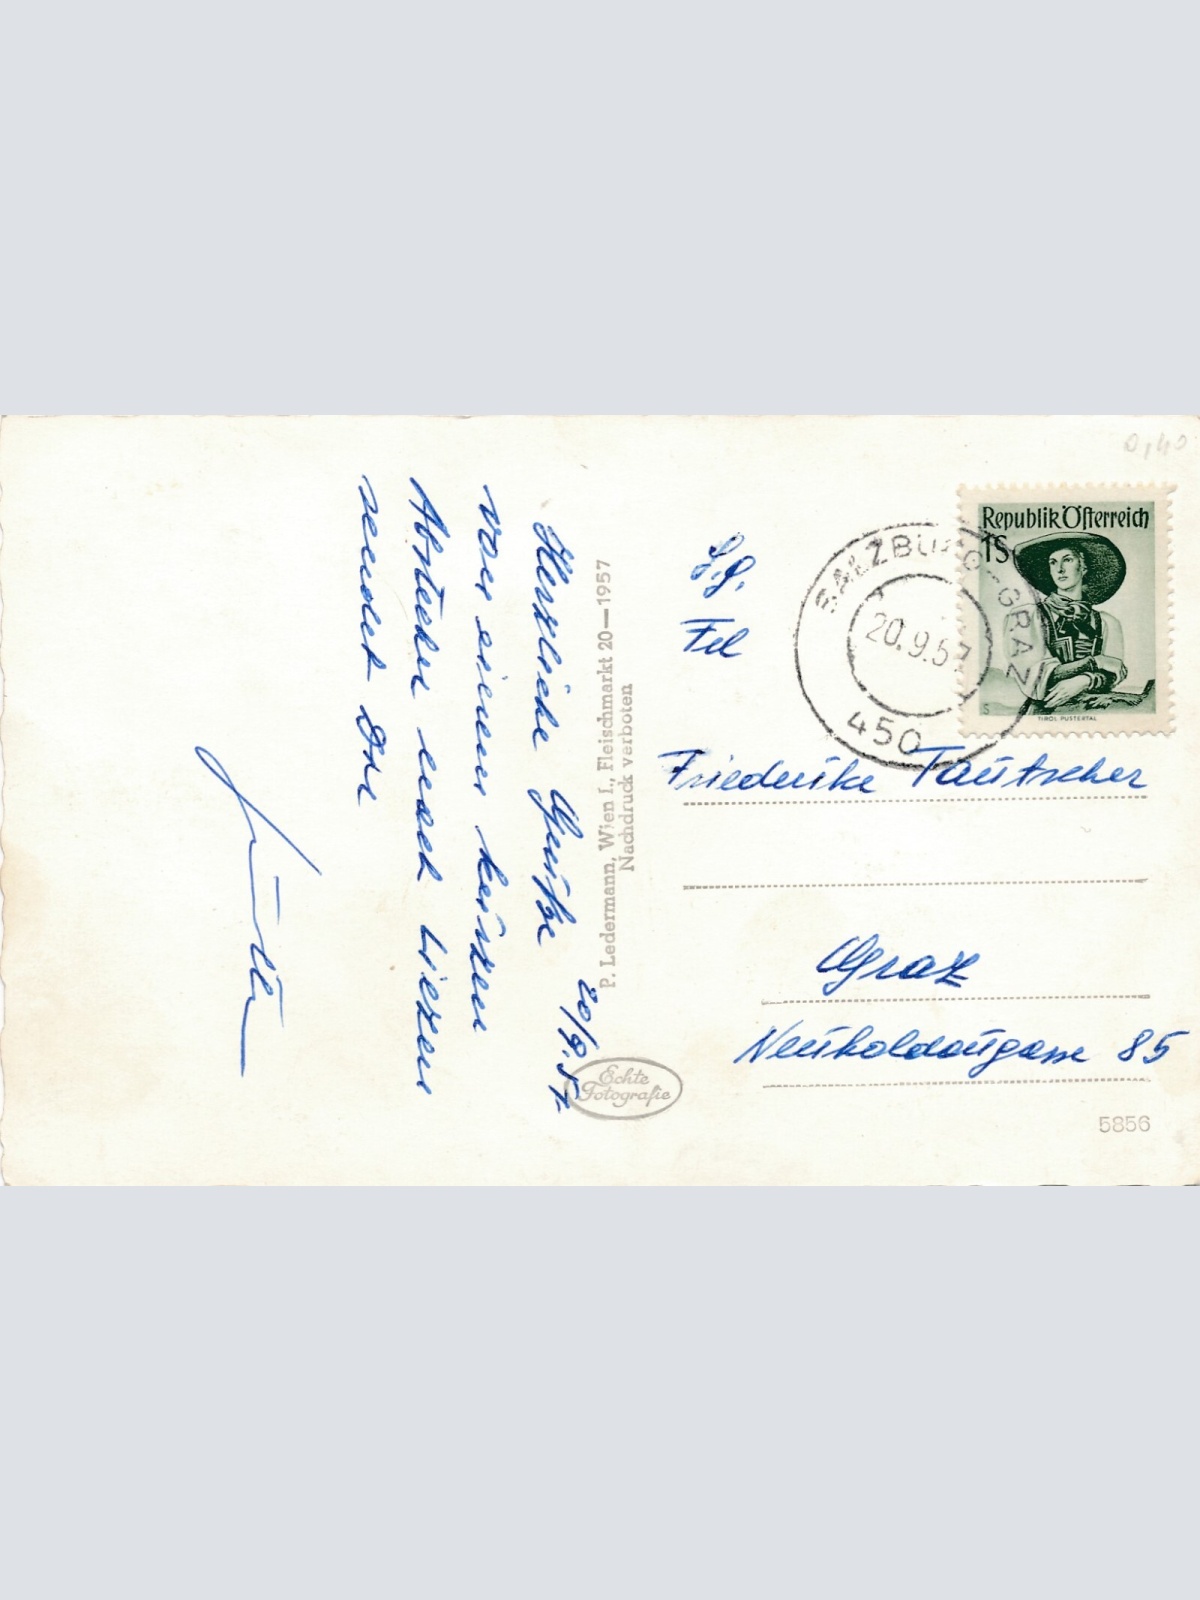 20/9.57
Herzliche Grüße
von einem kurzen
Abstecher nach Liezen
sendet Dir
P. Ledermann, Wien I., Fleischmarkt 20—1957
Nachdruck verboten
Echte
Fotografie
0,40
Republik Österreich
1S
TIROL PUSTERTAL
S
SALZBURG-GRAZ
20.9.57
450
S.g.
Frl
Friederike Tautscher
Graz
Neuholdaugasse 85
5856